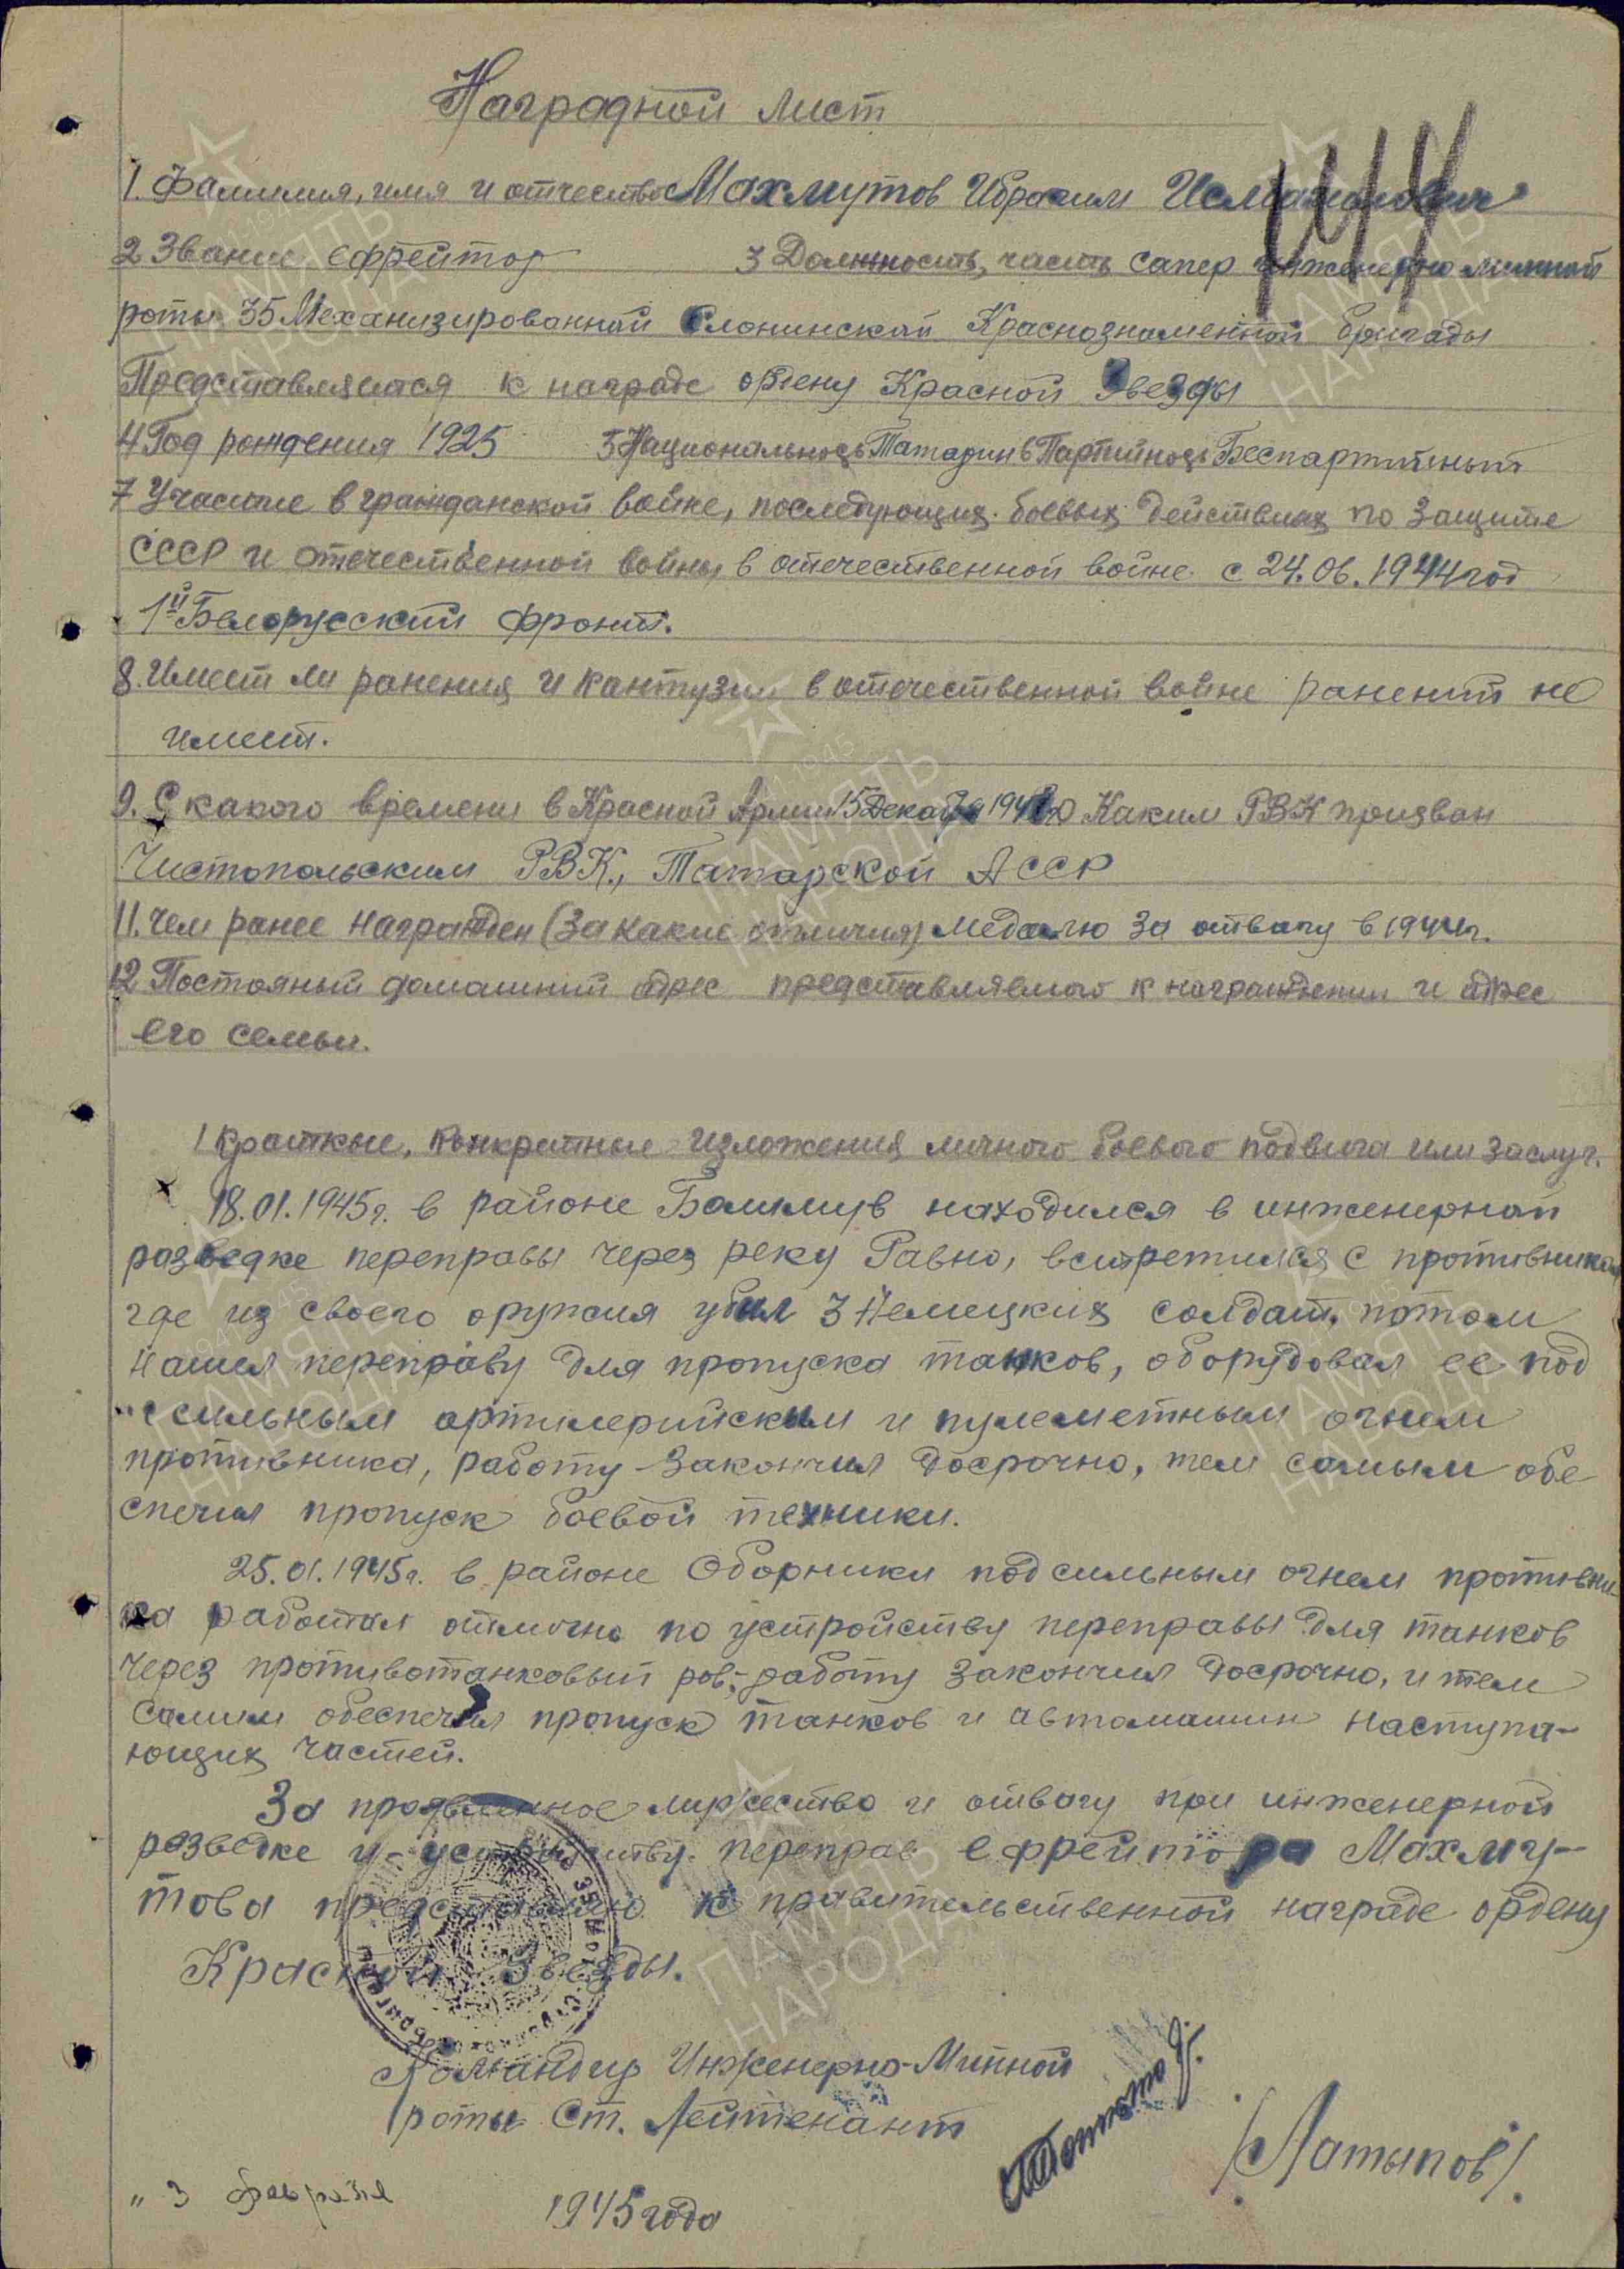 Наградной лист
144
1. Фамилия, имя и отчество Махмутов Ибрагим
2 Звание ефрейтор 3 Должность, часть сапер инженерно минной
роты 35 Механизированной Слонимской Краснознаменной бригады
Представляется к награде ордену Красной Звезды
4 Год рождения 1925 5 Национальнось Татарин 6 Партийнось Беспартийный
7 Участие в гражданской войне, последующих боевых действиях по защите
СССР и отечественной войны в отечественной войне с 24.06.1944 год
1й Белорусский фронт.
8. Имеет ли ранения и кантузии в отечественной войне ранений не
имеет.
9. С какого времени в Красной Армии 15 Декабря Каким РВК призван
Чистопольским РВК., Татарской АССР
11. Чем ранее награжден (за какие отличия) медалю За отвагу в 1944г.
12 Постояный домашний адрес представляемого к награждению и адрес
его семьи.
1 Краткие, конкретные изложения личного боевого подвига или заслуг.
18.01.1945г. в районе Болимув находился в инженерной
разведке переправы через реку Равно, встретился с противником
где из своего оружия убил 3 Немецких солдат, потом
нашел переправу для пропуска танков, оборудовал ее под
сильным артилерийским и пулеметным огнем
противника, работу закончил досрочно, тем самым обе
спечил пропуск боевой техники.
25.01.1945г. в районе Оборники под сильным огнем противни
ка работал отлично по устройству переправы для танков
через противотанковый ров, работу закончил досрочно, и тем
самим обеспечил пропуск танков и автомашин наступа-
ющих частей.
За проявленное мужество и отвагу при инженерной
разведке и устройству переправ ефрейтора Махму-
това представляю к правительственной награде ордену
Красной Звезды.
Командир Инженерно-Минной
роты Ст. Лейтенант
/Латыпов/.
„ 3 февраля 1945 года
ПАМЯТЬ
НАРОДА